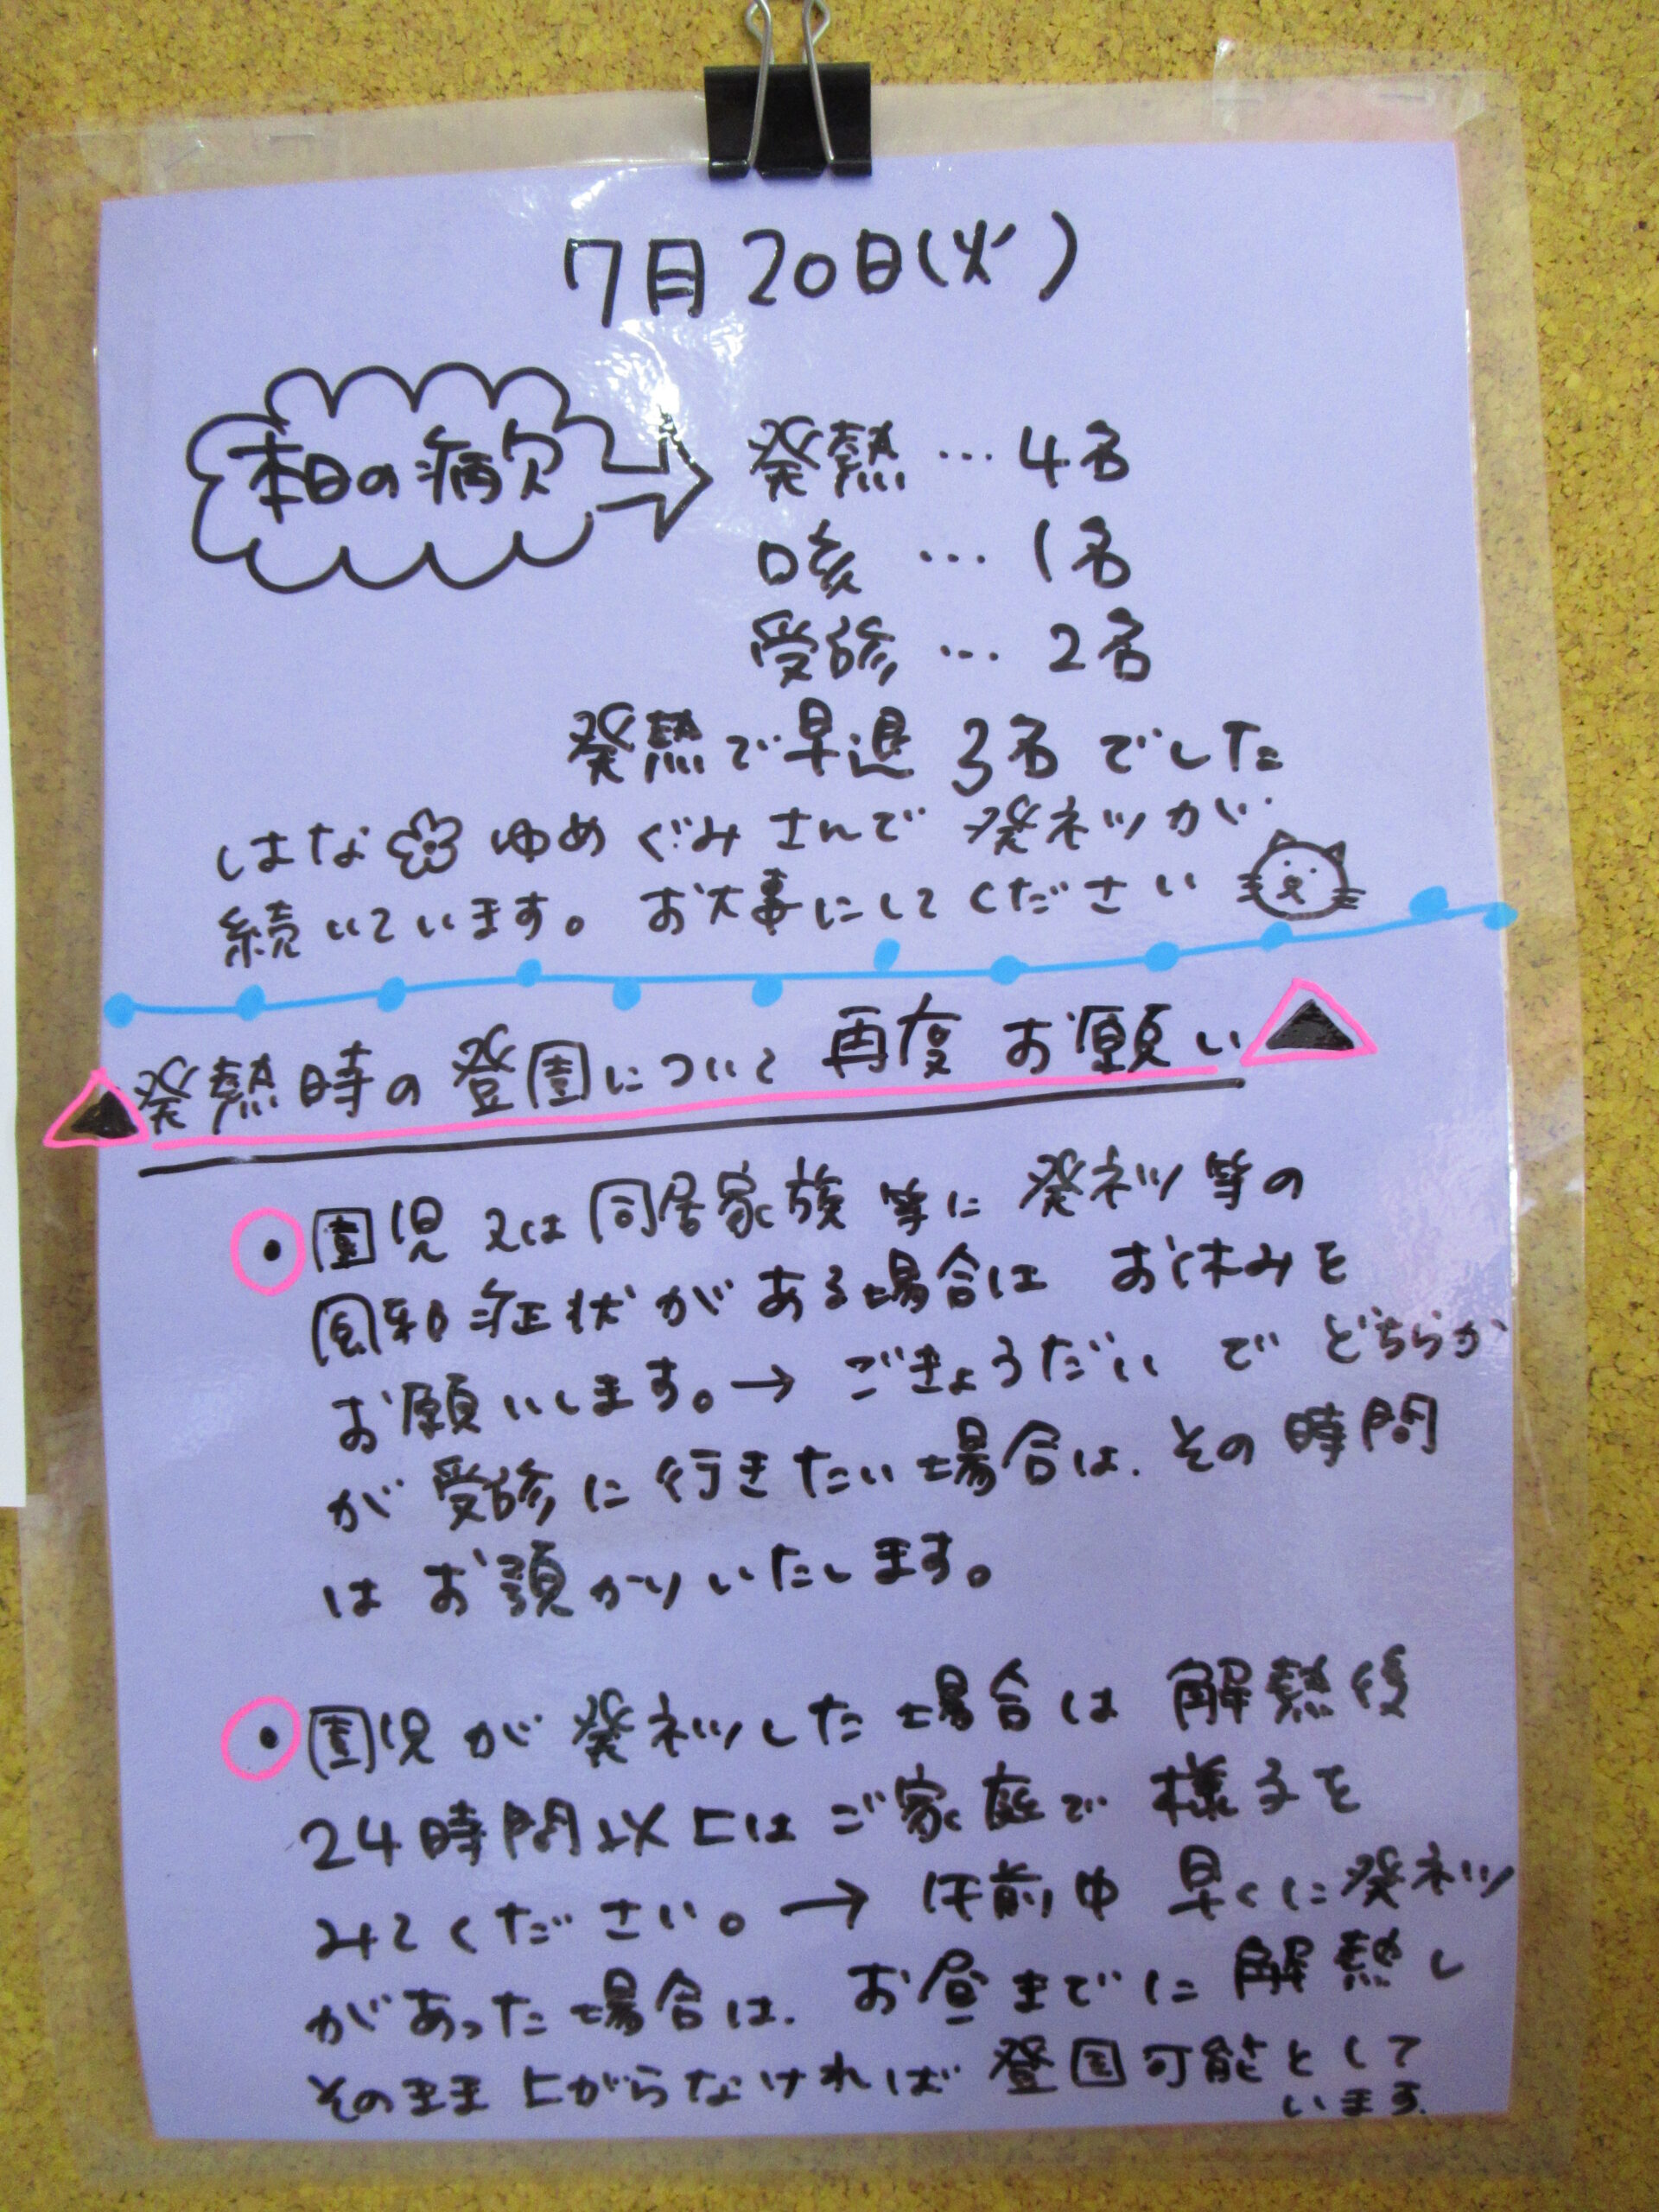 7月20日(火)
本日の病欠
発熱…4名
咳…1名
受診…2名
発熱で早退3名でした
はな ゆめぐみさんで発ネツが
続いています。お大事にしてください
発熱時の登園について再度お願い
・園児又は同居家族等に発ネツ等の
風邪症状がある場合はお休みを
お願いします。→ごきょうだいでどちらか
が受診に行きたい場合は、その時間
はお預かりいたします。
・園児が発ネツした場合は解熱後
24時間以上はご家庭で様子を
みてください。→午前中早くに発ネツ
があった場合は、お昼までに解熱し
そのまま上がらなければ登園可能として
います。